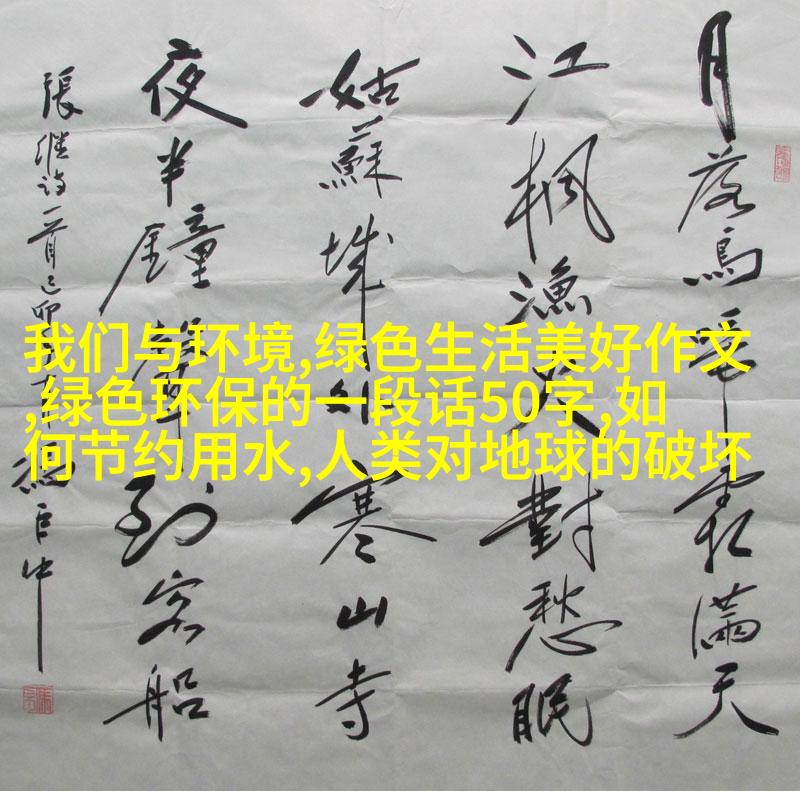 月落烏啼霜滿天
江楓漁火對愁眠
姑蘇城外寒山寺
夜半鐘聲到客船
張繼詩一首己卯
我们与环境,绿色生活美好作文
,绿色环保的一段话50字,如
何节约用水,人类对地球的破坏